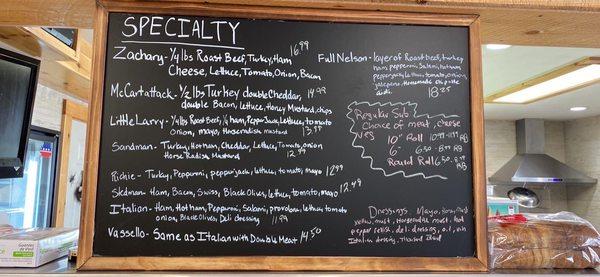 SPECIALTY
Zachary - 1/4 lbs Roast Beef, Turkey, Ham 16.99
Cheese, Lettuce, Tomato, Onion, Bacon
McCartattack - 1/2 lbs Turkey double Cheddar
double Bacon, lettuce, Honey Mustard, chips 14.99
Little Larry - 1/4 lbs Roast Beef, ham, Pepper Jack, lettuce, tomato
Onion, mayo, Horseradish mustard
Sandman - Turkey, Hotham, Cheddar, Lettuce, Onion
Horse Radish Mustard 12.99
Richie - Turkey, Pepperoni, pepperjack, lettuce, tomato, mayo 12.99
Sledman - Ham, Bacon, Swiss, Black Olives, lettuce, tomato, mayo 12.49
Italian - Ham, Hotham, Pepperoni, Salami, provolone, lettuce, tomato
onion, Black Olives, Deli dressing 11.99
Vassello - Same as Italian with Double Meat 14.50
Full Nelson - layer of Roast beef, turkey
ham, pepperoni, Salami, hotham,
pepperjack, lettuce, tomato, onion,
jalapeno, Homemade chipotle
18.25
Regular Sub
Choice of meat, cheese
Veg
10" Roll
6"
Round Roll
Dressings Mayo, Honey must
yellow must, Horseradish must, Hot
pepper relish, deli dressing, oil, vin
Italian dressing, Thousand Island